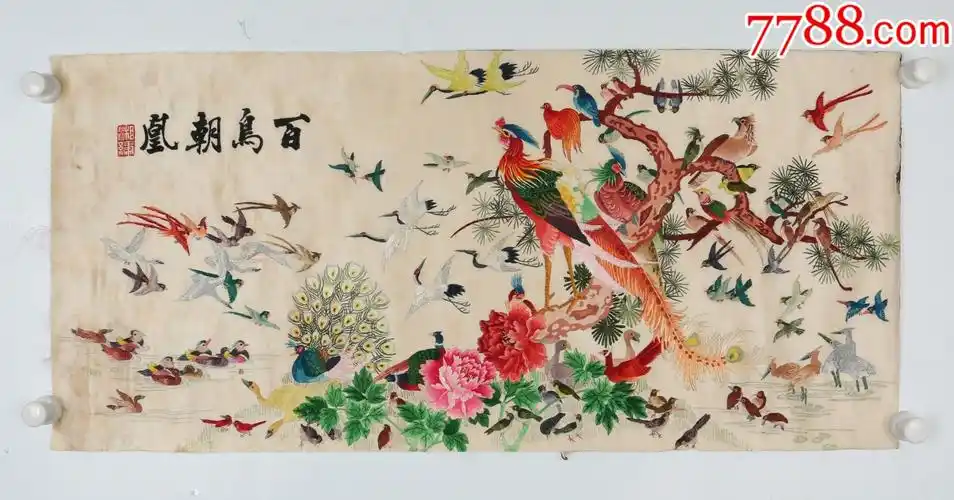 7788.com
百鳥朝凰